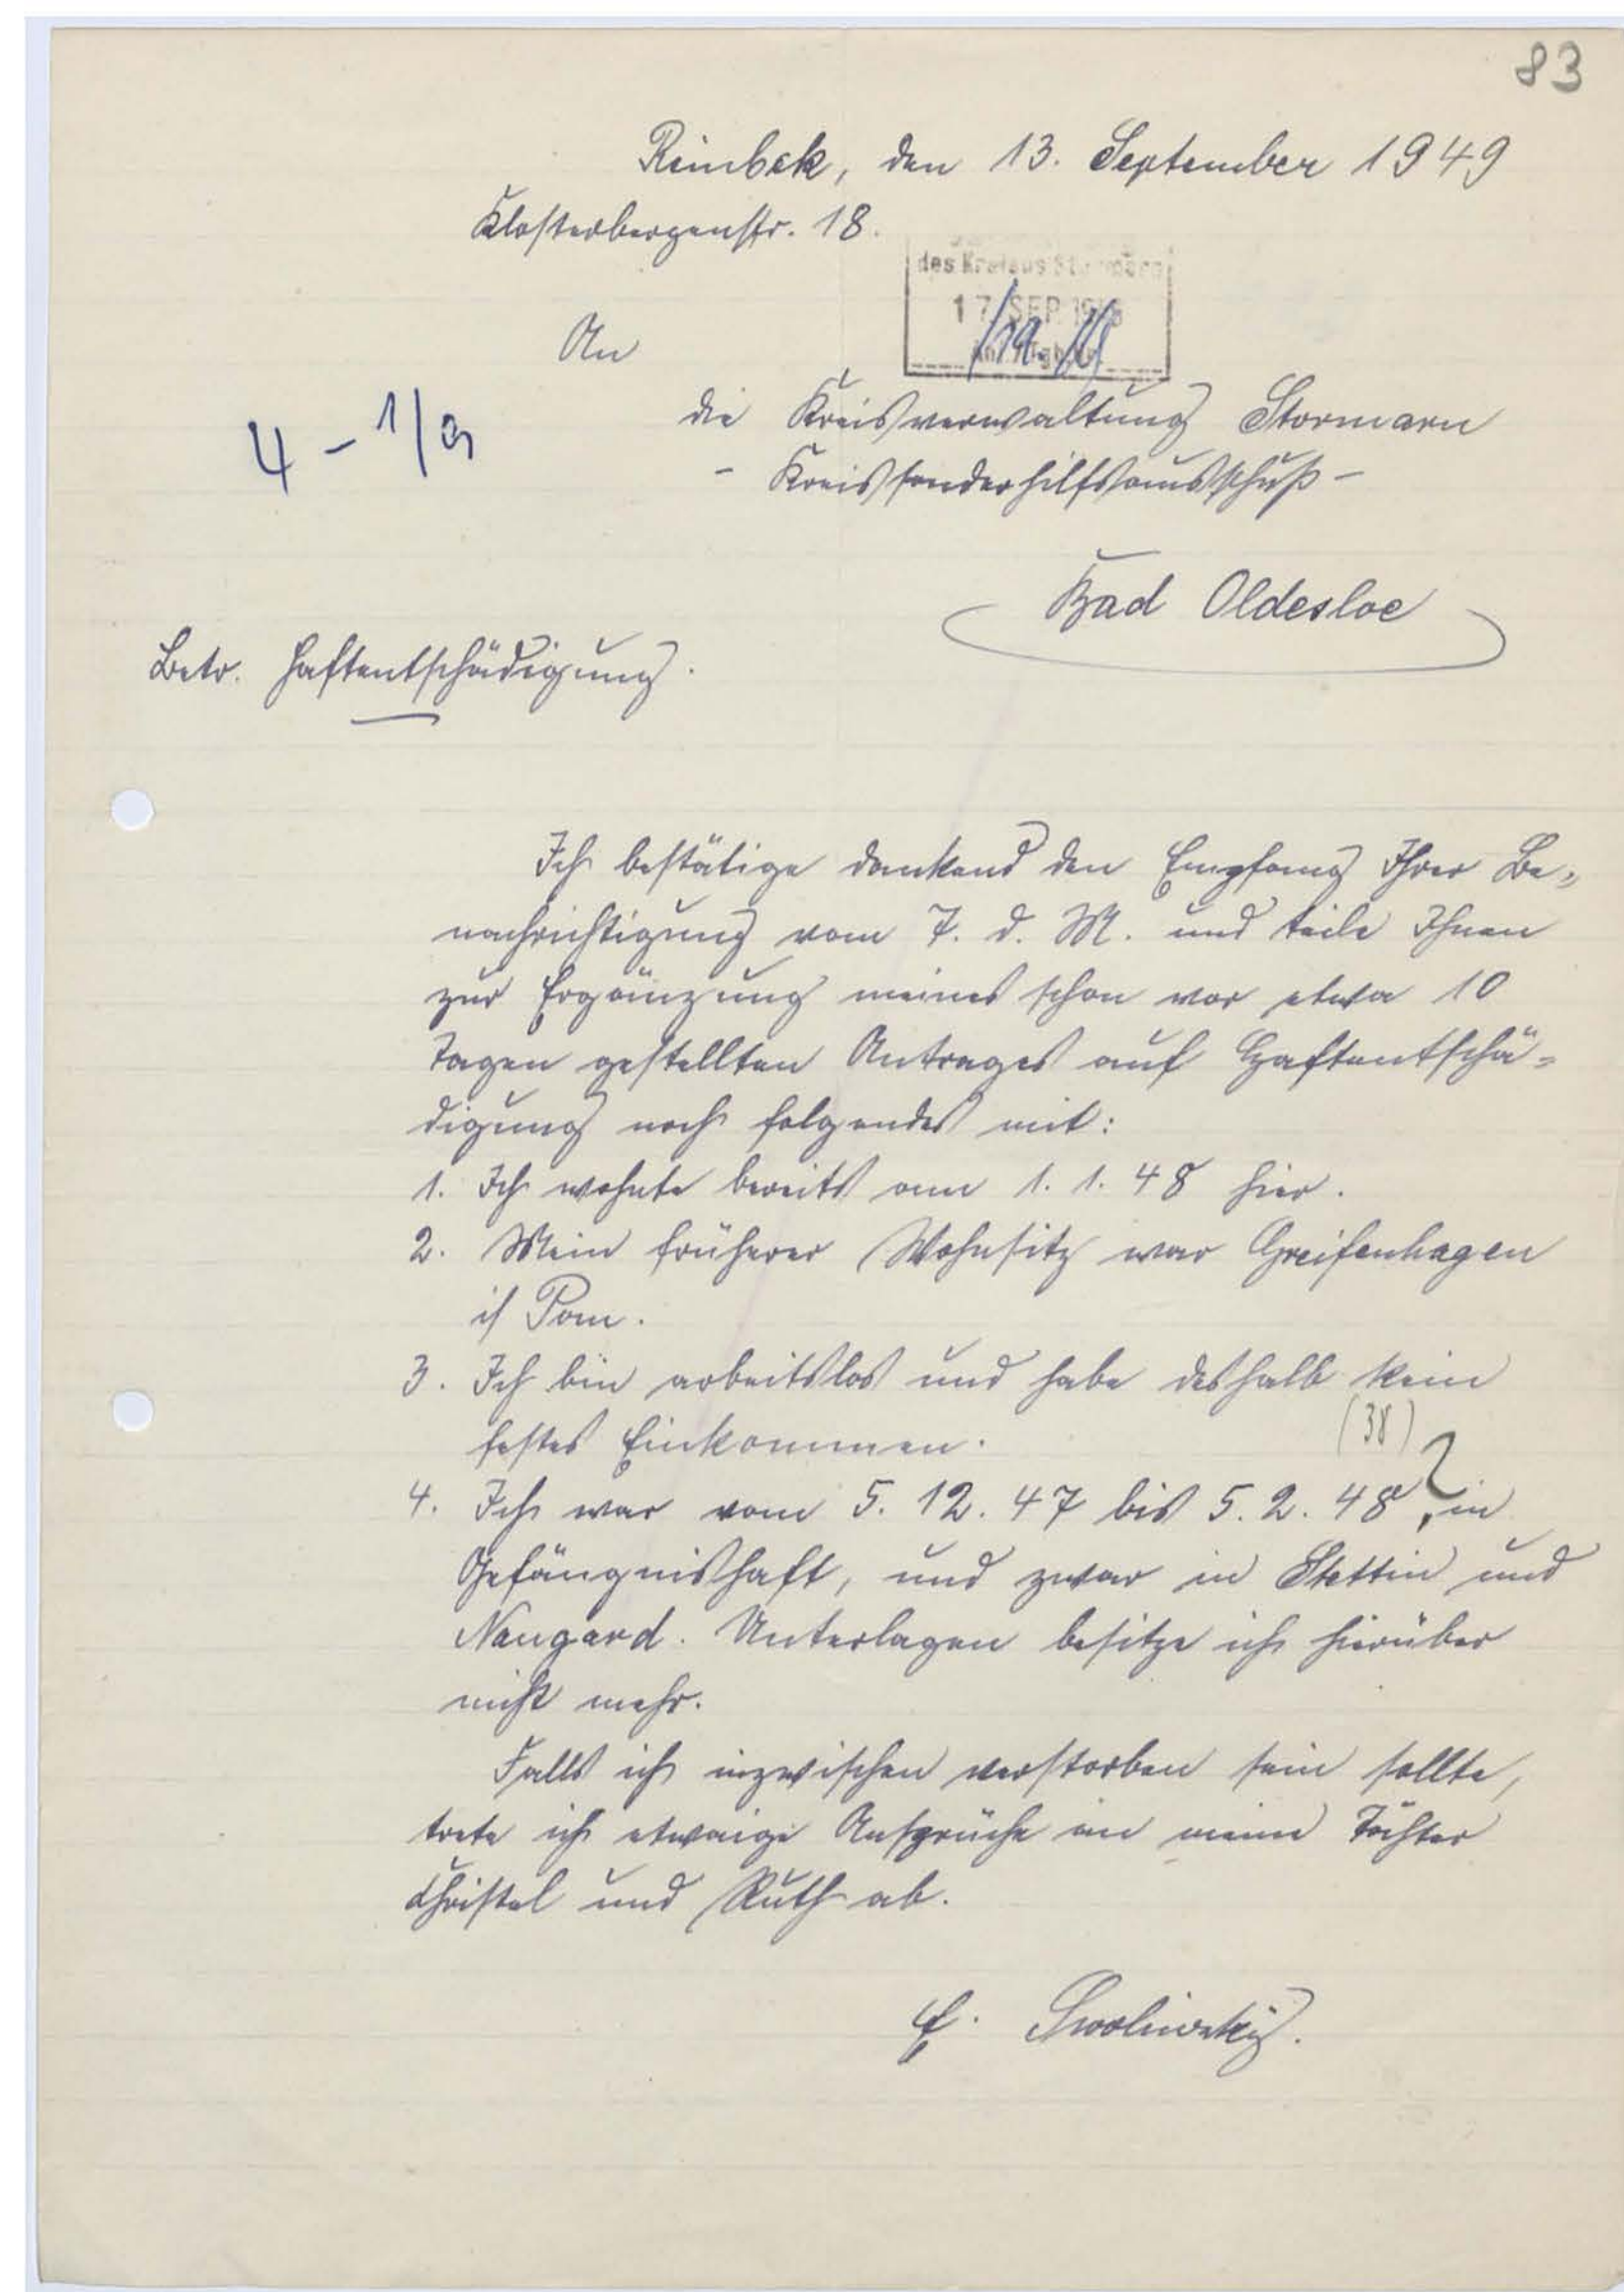 83
Reinbek, den 13. September 1949
Klosterbergenstr. 18.
des Kreises Stormarn
17. SEP. 19
An
4 - 1/9
die Kreisverwaltung Stormarn
- Kreissonderhilfsausschuß -
Bad Oldesloe
Betr. Haftentschädigung.
Ich bestätige dankend den Empfang Ihrer Be-
nachrichtigung vom 7. d. M. und teile Ihnen
zur Ergänzung meines schon vor etwa 10
Tagen gestellten Antrages auf Haftentschä-
digung noch folgendes mit:
1. Ich wohnte bereits am 1. 1. 48 hier.
2. Mein früherer Wohnsitz war Greifenhagen
i/ Pom.
3. Ich bin arbeitslos und habe deshalb kein
festes Einkommen.
(38) ?
4. Ich war vom 5. 12. 47 bis 5. 2. 48, in
Gefängnishaft, und zwar in Stettin und
Naugard. Unterlagen besitze ich hierüber
nicht mehr.
Falls ich inzwischen verstorben sein sollte,
trete ich etwaige Ansprüche an meine Töchter
Christel und Ruth ab.
E.